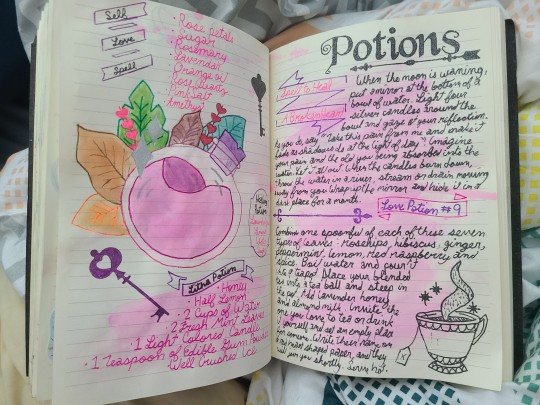 Self
Love
Spell
• Rose petals
• Sugar
• Rosemary
• Lavender
Orange oil
Rose Quartz
Pink Salt
Amethyst
Litha Potion
• Honey
• Half Lemon
• 2 Cups of Water
• 2 Fresh Mint Leaves
• 1 Light Colored Candle
• 1 Teaspoon of Edible Gum
Well Crushed Ice
Potions
Spell to Heal
A Broken Heart
When the moon is waning,
put a mirror at the bottom of a
bowl of water. Light four
silver candles around the
bowl and gaze @ your reflection.
As you do, say "Take this pain from me and make it
fade as shadows do at the light of day." Imagine
your pain and the old you being absorbed into the
water. Let it all out. When the candles burn down,
throw the water in a river, stream or drain moving
away from you. Wrap up the mirror and hide it in a
dark place for a month.
Love Potion #9
Combine one spoonful of each of these seven
types of leaves: Rosehips, hibiscus, ginger,
peppermint, lemon, red raspberry and
spice. Boil water and pour it
into a teapot. Place your blended
tea into a tea ball and steep in
the pot. Add lavender honey
and almond milk. Invite the
one you love to tea or drink
it yourself and set an empty place
for someone. Write their name on
a heart shaped paper, and they
will join you shortly. Serve hot.